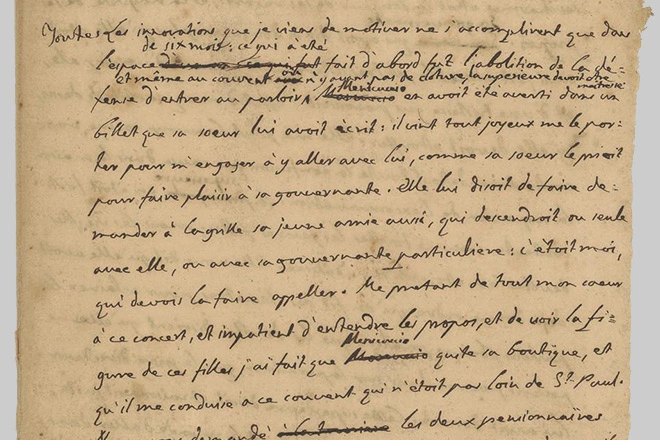 Toutes les innovations que je viens de motiver ne s'accomplirent que dans
de six mois: ce qui a été
l'espace fut fait d'abord fut l'abolition de la dé-
et même au couvent où n'y ayant pas de cloture la superieure devoit être
maitresse
fense d'entrer au parloir,
Menicuccio
en avoit été averti dans un
billet que sa soeur lui avoit écrit: il vint tout joyeux me le por-
ter pour m'engager à y aller avec lui, comme sa soeur le prioit
pour faire plaisir à sa gouvernante. Elle lui disoit de faire de-
mander à la grille sa jeune amie aussi, qui descendroit ou seule
avec elle, ou avec sa gouvernante particuliere: c'étoit moi,
qui devois la faire appeller. Me pretant de tout mon coeur
à ce concert, et impatient d'entendre les propos, et de voir la fi-
Menicuccio
gure de ces filles j'ai fait que quite sa boutique, et
qu'il me conduise a ce couvent qui n'étoit pas loin de St. Paul.
demandé les deux pensionnaires